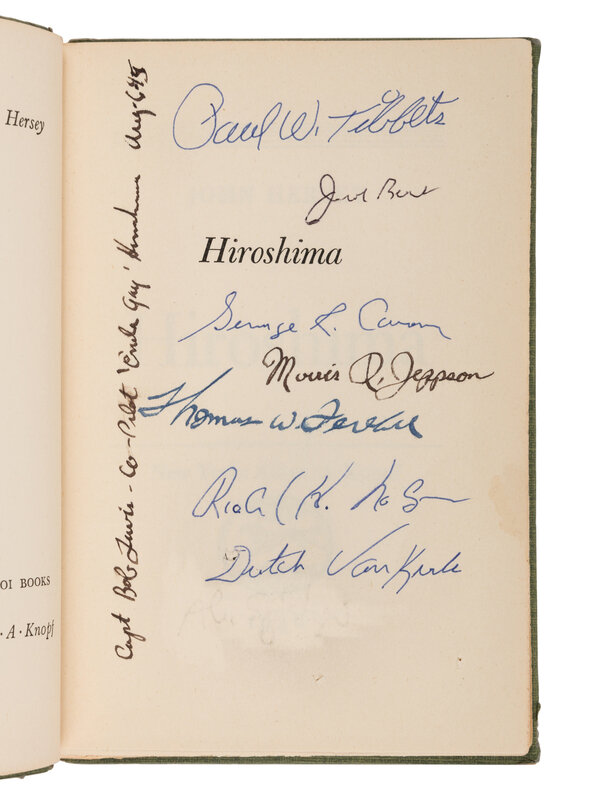 Hersey
OI BOOKS
· A · Knopf
Capt Bob Lewis - Co-Pilot 'Enola Gay' Hiroshima Aug-6-45
Paul W. Tibbets
Hiroshima
George R. Caron
Morris R. Jeppson
Thomas W. Ferebee
Richard K. Nelson
Dutch Van Kirk